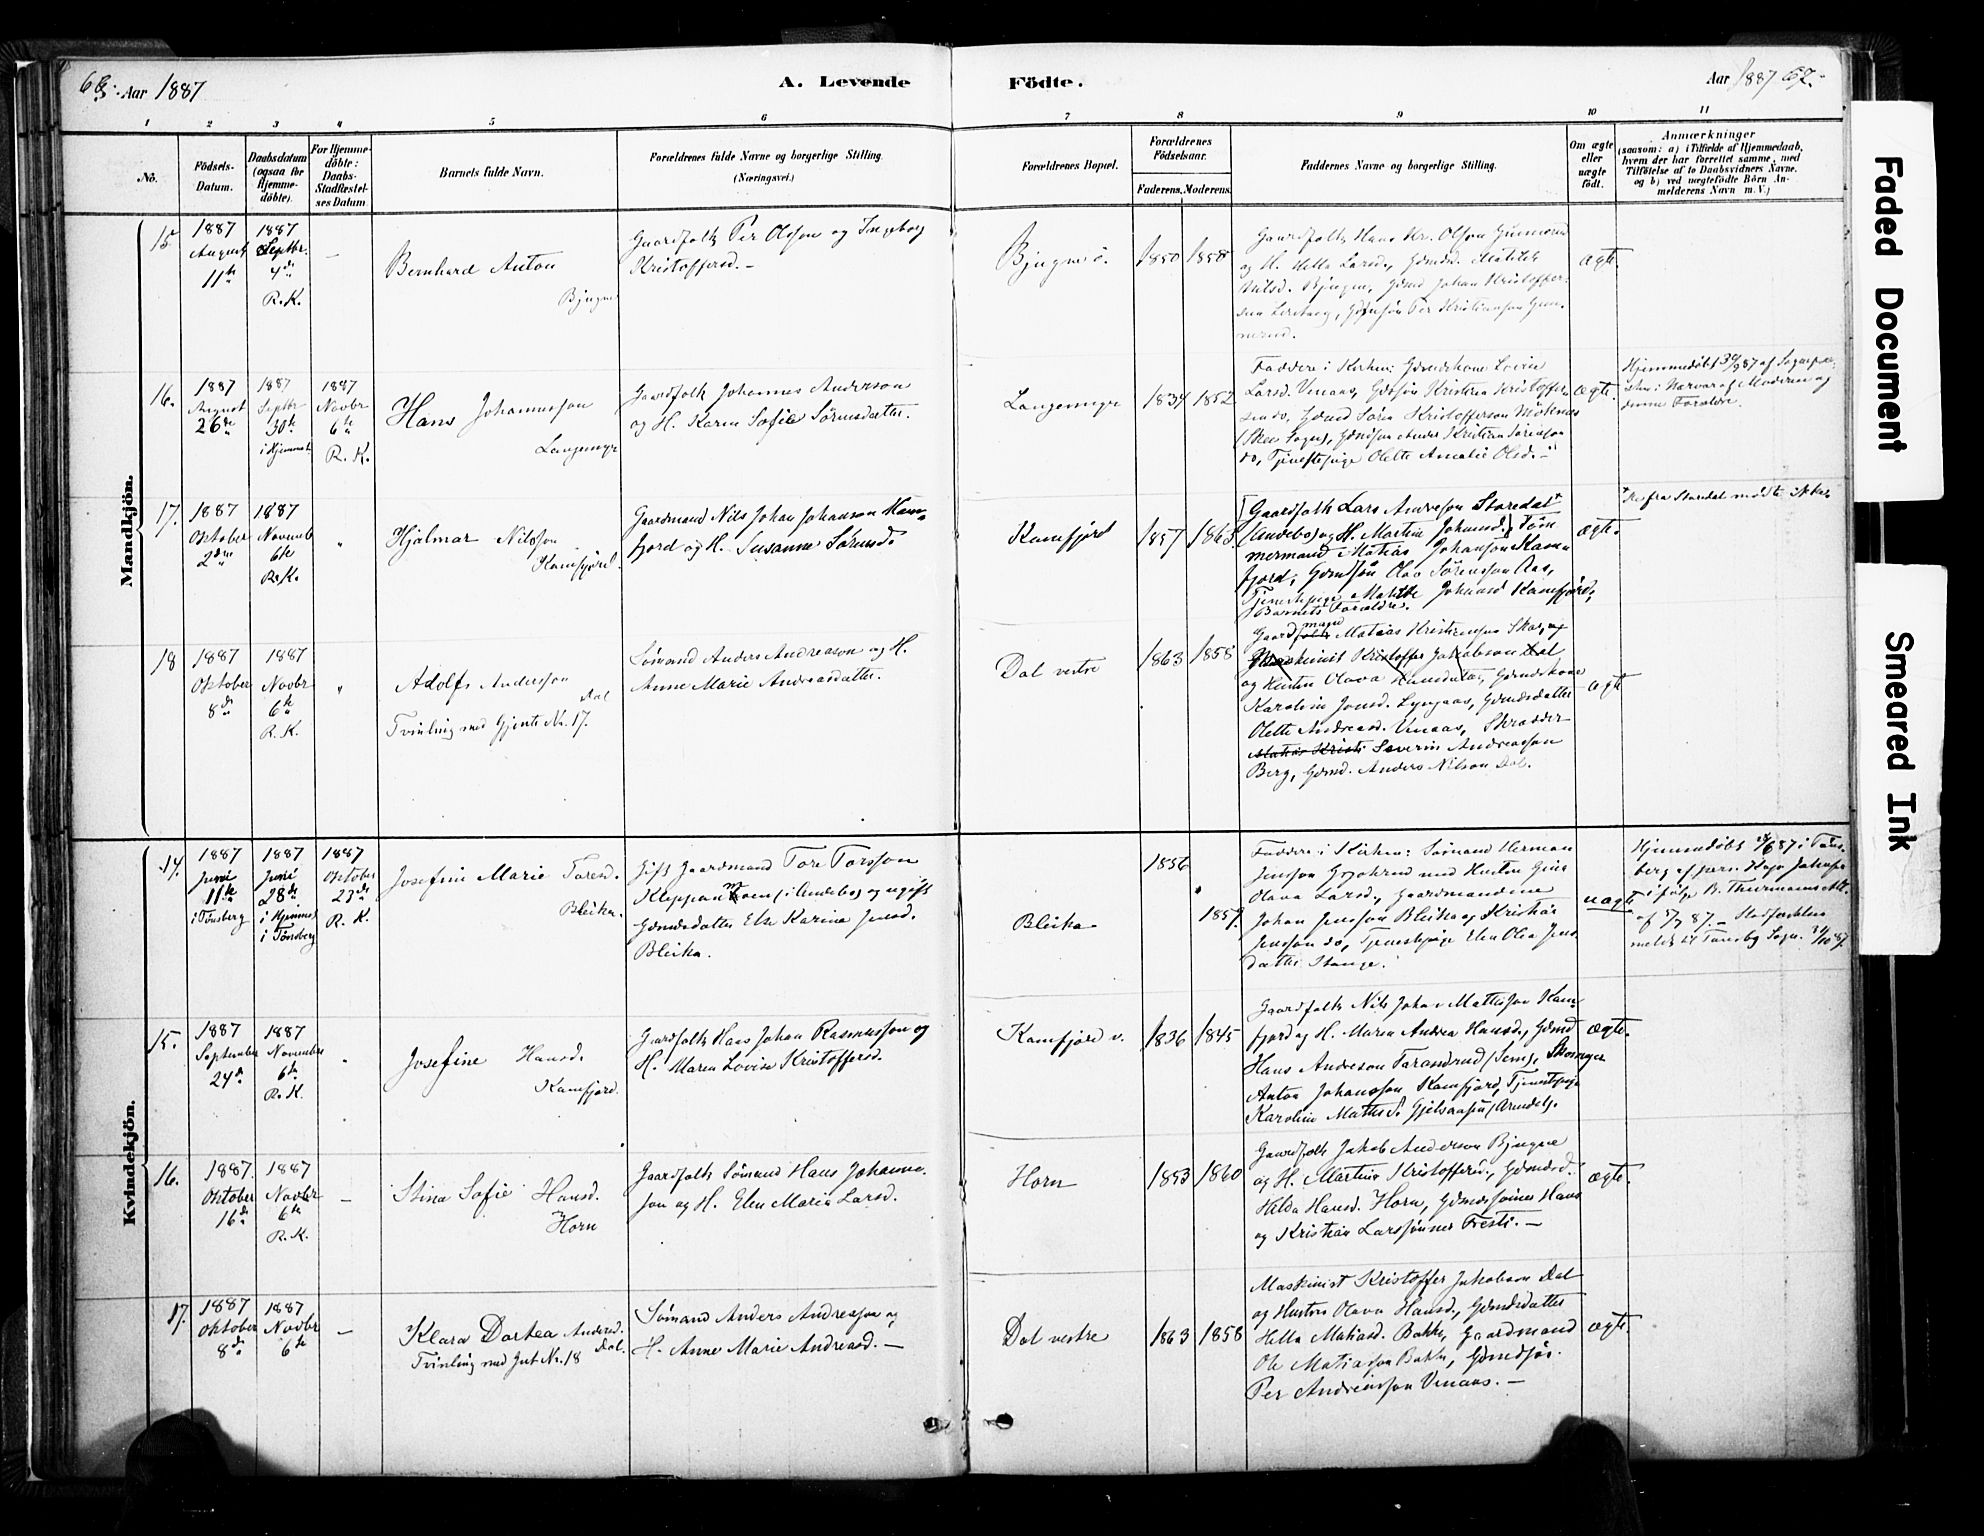 Aar 1887
A. Levende
Födte.
Aar 1887 67.
1 2 3 4 5 6 7 8 9 10 11
No.
Födsels-
Datum.
Daabsdatum
(ogsaa for
Hjemme-
döbte).
For Hjemme-
döbte:
Daabs-
Stadfæstel-
ses Datum
Barnets fulde Navn.
Forældrenes fulde Navne og borgerlige Stilling.
(Næringsvei.)
Forældrenes Bopæl.
Forældrenes
Födselsaar.
Faderens. Moderens.
Faddernes Navne og borgerlige Stilling.
Om ægte
eller
uægte
födt.
Anmærkninger
(saasom: a) i Tilfælde af Hjemmedaab,
hvem der har forrettet samme, med
Tilföielse af to Daabsvidners Navne,
og b) ved uægtefödte Börn An-
melderens Navn m. V.)
Mandkjön.
15.
1887
August
11te
1887
Septbr.
4de
R. K.
–
Bernhard Anton
Bjugne
Gaardfolk Per Olsson og Ingeborg
Kristoffersd. –
Bjugne ö.
1850 1858
Gaardfolk Hans Kr. Olsson Gunnerud
og H. Helle Larsd., Gdmdsd. Matilde
Nilsd. Bjugne, Gdmd Johan Kristoffer-
sen, Gdmdsön Per Kristianson Gun-
nerud.
ægte.
16.
1887
August
26de
1887
Septbr
30te
i Hjemmet
1887
Novbr
6te
R. K.
Hans Johannesson
Langemyr
Gaardfolk Johannes Anderson
og H. Karen Sofie Sörensdatter.
Langemyr
1834 1852
Faddere i Kirken: Gdmdskone Lovise
Larsd. Vinaas, Gdmdsön Kristen Kristoffer-
sen do, Gdmd Sören Kristofferson
Gdmdsön Anders Kristian Sörensson
do, Tjenestepige Olette Amalie Olsd. –
ægte.
Hjemmedöbt 30/9 87 af Sognepræ-
sten i Nærvær af Moderen og
dennes Forældre.
17.
1887
Oktober
2den
1887
Novemb
6te
R. K.
"
Hjalmar Nilsson
Kamfjord.
Gaardmand Nils Johan Johanson Kam-
fjord og H. Susanne Sörensd.
Kamfjord
1857 1863
Gaardfolk Lars Andreson Storedal
(Andebo) og H. Martine Johansd., Töm-
mermand Matias Johanson Kam-
fjord, Gdmdsön Olav Sörensson Aas,
Tjenestepige Matilde Johansd Kamfjord,
Barnets Forældre.
ægte.
fra Storedal mödte ikke
18
1887
Oktober
8de
1887
Novbr
6te
R. K.
"
Adolf Andersson
Dal
Tvinling med Gjente Nr. 17.
Sömand Anders Andreason og H.
Anne Marie Andreasdatter.
Dal vestre
1863 1858
Gaardfolk mand Matias Kristenson Skar, og
Maskinist Kristoffer Jakobson Dal
og Hustru Olava Hansdatter, Gdmdskone
Karoline Jonsd. Lyngaas, Gdmdsdatter
Olette Andreasd. Vinaas, Skrædder
Matias Kristi Severin Andreasson
Berg, Gdmd. Anders Nilson Dal.
ægte
Kvindekjön.
14.
1887
Juni
11te
i Tönsberg
1887
Juni
28de
i Hjemmet
i Tönsberg
1887
Oktober
23de
R. K.
Josefine Marie Toresd.
Bleika.
Gift Gaardmand Tore Torsson
Kleppanmoen i Andebo og ugift
Gdmdsdatter Else Karine Jensd.
Bleika.
Bleika
1856
1857.
Faddere i Kirken: Sömand Herman
Jensson med Hustru Gina
Olava Larsd., Gaardmændene
Johan Jensson Bleika og Kristian
Jensson do, Tjenestepige Elen Olea Jens-
datter Stange.
uægte
Hjemmedöbt 28/6 87 i Töns-
berg af
i fölge B. Thurmanns Att.
af 5/7 87. – Stadfæstelsen
meldt til Tönsberg Sogn. 24/10 87.
15.
1887
September
24de
1887
November
6te
R. K.
"
Josefine Hansd.
Kamfjord.
Gaardfolk Hans Johan Rasmusson og
H. Maren Lovise Kristoffersd.
Kamfjord v.
1836 1845
Gaardfolk Nils Johan Mattisson Kam-
fjord og H. Maren Andrea Hansd., Gdmd
Hans Andreson Tarandrud (Sem), Skomager
Anton Johansson Kamfjord, Tjenestepige
Karoline Mattisd. Gjelsaasen (Arendal).
ægte.
16.
1887.
Oktober
16de
1887
Novbr
6te
R. K.
–
Stina Sofie Hansd.
Horn
Gaardfolk Sömand Hans Johannes-
son og H. Elen Marie Larsd.
Horn
1853 1860
Gaardfolk Jakob Anderson Bjugne
og H. Martine Kristoffersd., Gdmdsd.
Hilda Hansd. Horn, Gdmdssönner Hans
og Kristian Larssönner Tresti. –
ægte.
17.
1887
Oktober
8de
1887
Novbr
6te
–
Klara Dortea Andersd.
Dal.
Tvinling med Gut Nr. 18
Sömand Anders Andresson og
H. Anne Marie Andreasd. –
Dal vestre
1863 1858
Maskinist Kristoffer Jakobson Dal
og Hustru Olava Hansd., Gdmdsdatter
Helle Matiasd. Bakke, Gaardmand
Ole Matiasson Bakke, Gdmdsön
Per Andreasson Vinaas. –
ægte.
Faded Document
Smeared Ink